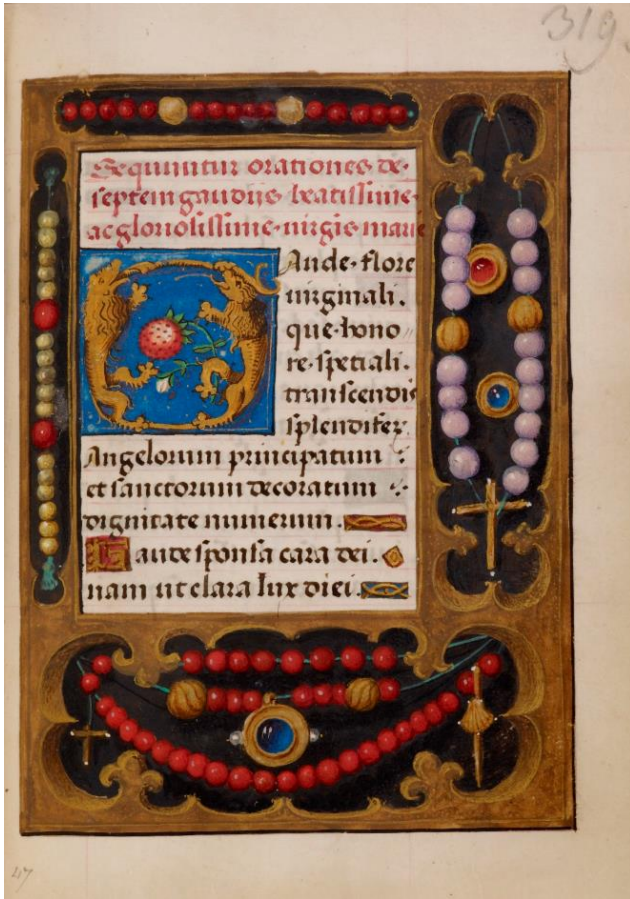 319
Sequuntur orationes de
septem gaudiis beatissime
ac gloriosissime virgīs marie
Gaude flore
virginali.
que hono
re speciali.
transcendis
splendifer
Angelorum principatum
et sanctorum decoratum
dignitate munerum.
Gaude sponsa cara dei.
nam ut clara lux diei.
47